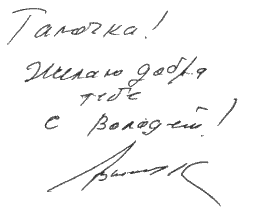 Галочка!
Желаю добра
тебе
с Володей!